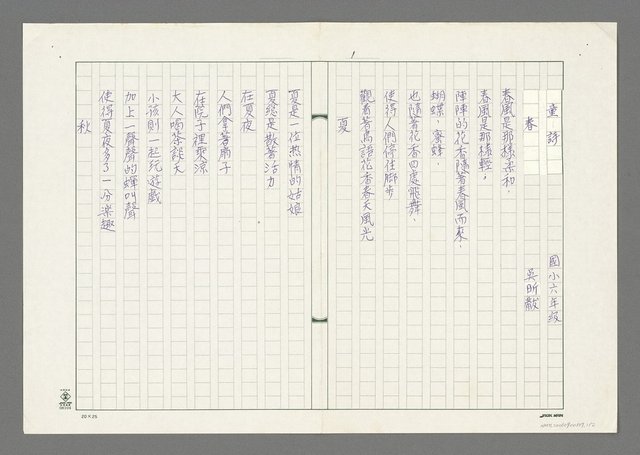 1
童詩
國小六年級
春
吳昕黻
春風是那樣柔和,
春風是那樣輕,
陣陣的花香隨著春風而來,
蝴蝶,蜜蜂,
也隨著花香四處飛舞,
使得人們停住腳步
觀看著鳥語花香春天風光
夏
夏是一位热情的姑娘
夏總是散著活力
在夏夜
人們拿著扇子
在院子裡乘涼
大人喝茶談天
小孩則一起玩遊戲
加上一聲聲的蟬叫聲
使得夏夜多了一分樂趣
秋
20×25